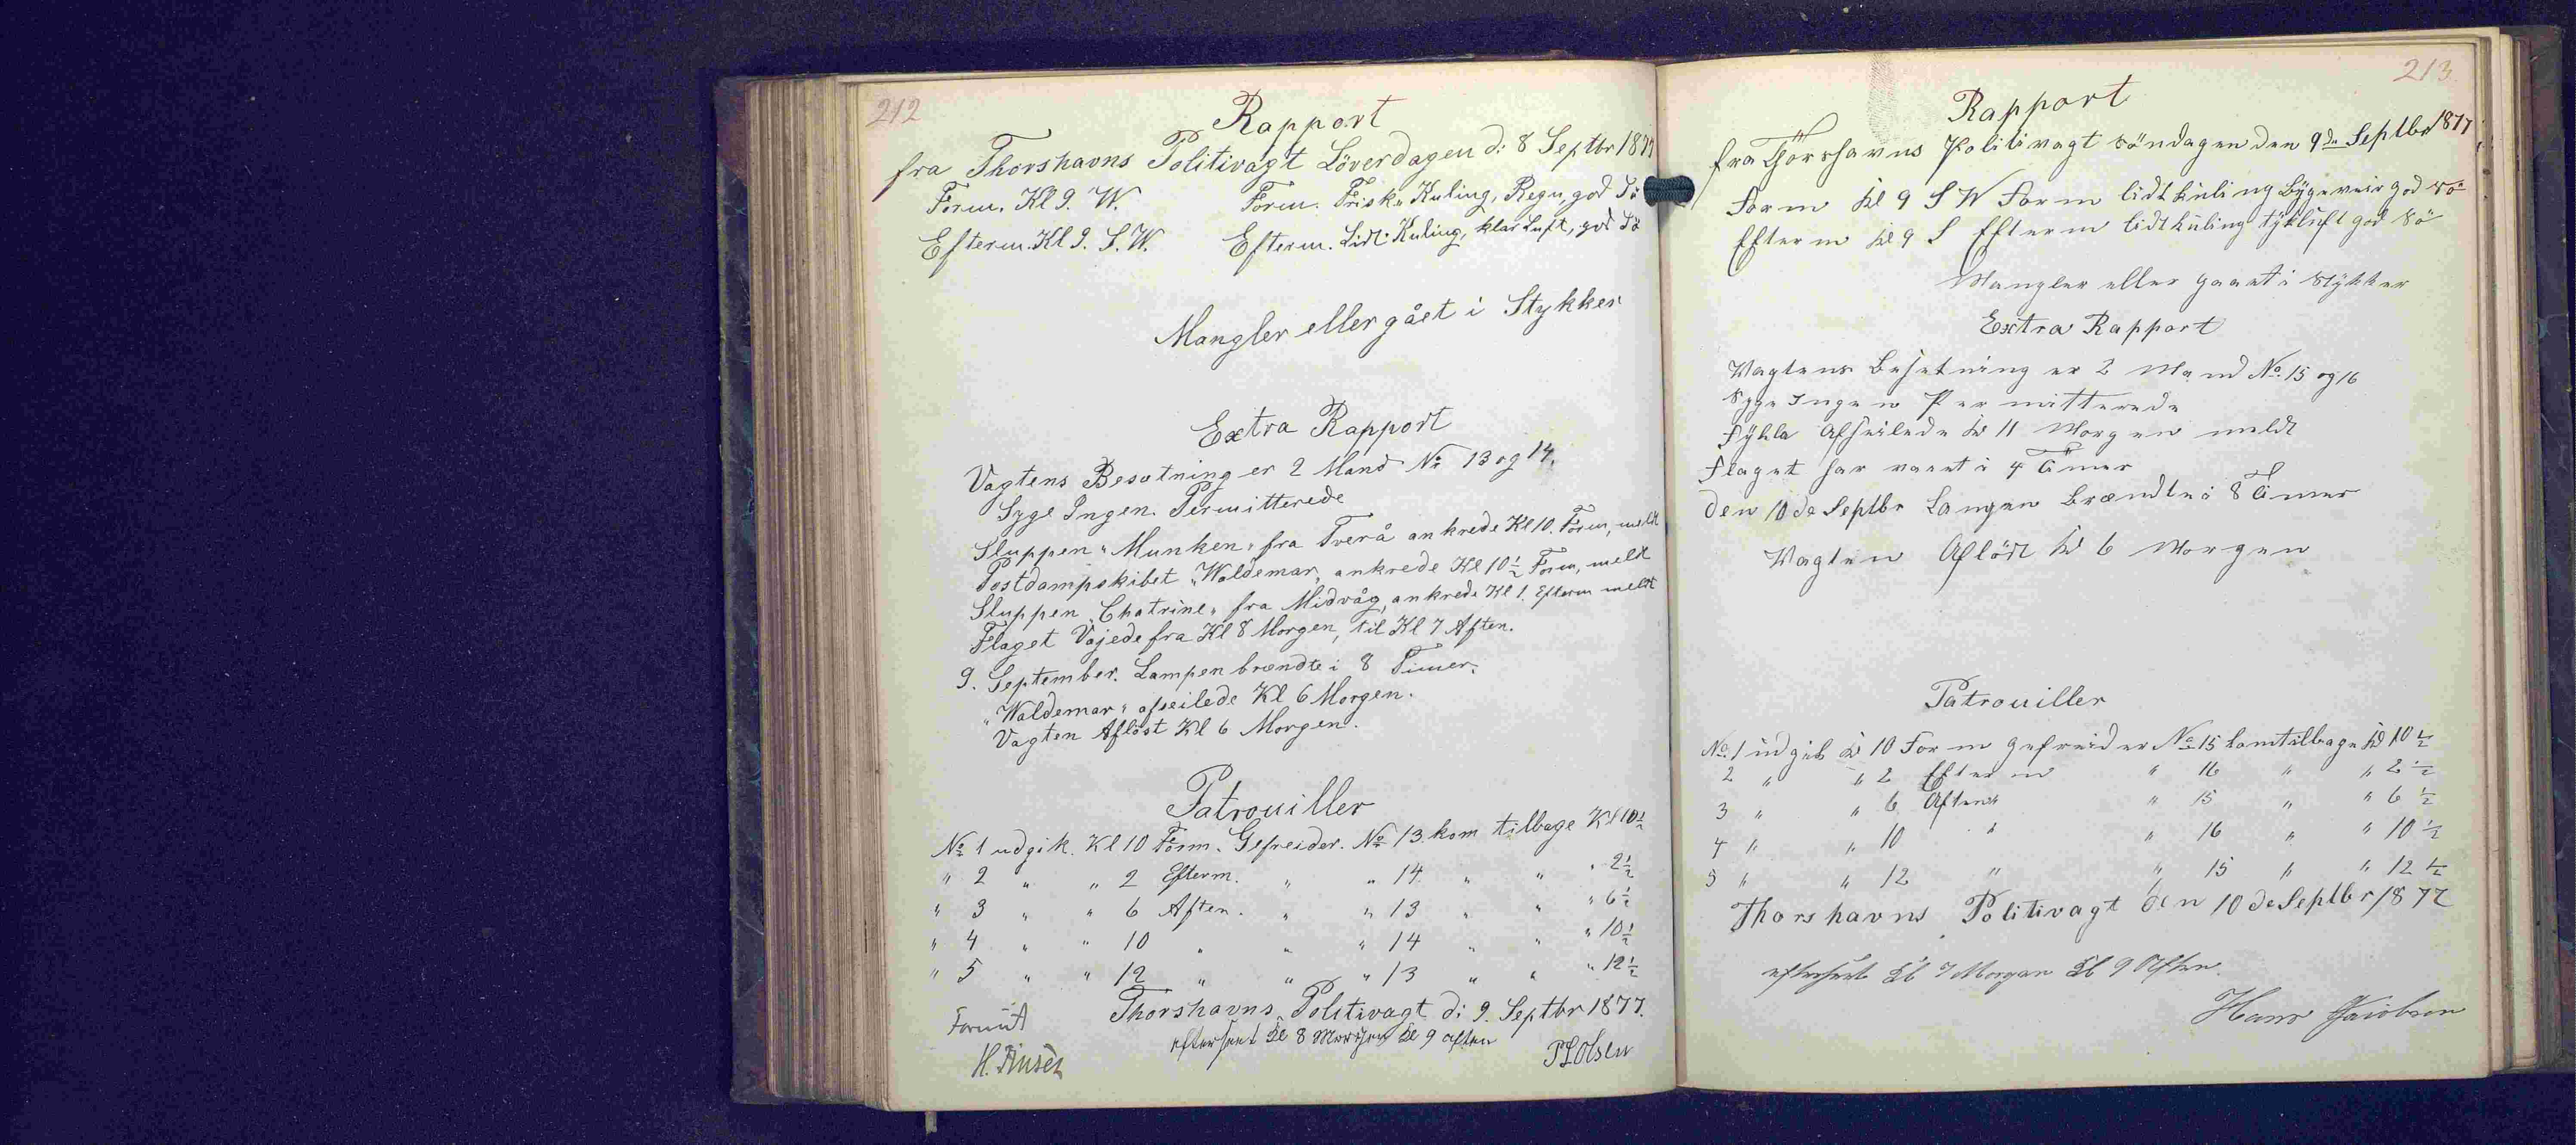 212
Rapport
fra Thorshavns Politivagt Löverdagen d: 8 Septbr 1877
Form. Kl 9. W. Form. Frisk Kuling, Regn, god Sö
Efterm. Kl 9. S.W. Efterm. Lidt Kuling, klar Luft, god Sö
Mangler eller gået i Stykker
Extra Rapport
Vagtens Besætning er 2 Mand No 13 og 14.
Syge Ingen. Permitterede
Sluppen "Munken" fra Tverå ankrede Kl 10. Form, meldt
Postdampskibet "Waldemar" ankrede Kl 10½ Form, meldt
Sluppen "Chatrine" fra Midvåg, ankrede Kl 1. Efterm meldt
Flaget Vajede fra Kl 8 Morgen, til Kl 7 Aften.
9. September. Lampen brændte i 8 Timer.
"Waldemar" afseilede Kl 6 Morgen.
Vagten Aflöst Kl 6 Morgen.
Patrouiller
No 1 udgik. Kl 10 Form. Gefreider. No 13 kom tilbage Kl 10½
" 2 " " 2 Efterm. " " 14 " " " 2½
" 3 " " 6 Aften. " " 13 " " " 6½
" 4 " " 10 " " " 14 " " " 10½
" 5 " " 12 " " " 13 " " " 12½
Thorshavns Politivagt d: 9. Septbr 1877.
efterseet Kl 8 Morgen Kl 9 aften
H. Finsen P L Olsen
213.
Rapport
fra Thorshavns Politivagt Söndagen den 9de Septbr 1877
Form Kl 9 S W Form lidt Kuling Bygeveir god Sö
Efterm Kl 9 S Efterm lidt Kuling tykluft god Sö
Mangler eller gaaet i Stykker
Extra Rapport
Vagtens Besetning er 2 Mand No. 15 og 16
Syge Ingen Permitterede
Afseilede Kl 11 Morgen meldt
Flaget har vaaet i 4 Timer
Den 10de Septbr Lampen Brændte i 8 Timer
Vagten Aflöst Kl 6 Morgen
Patrouiller
No. 1 udgik Kl 10 Form Gefreider No 15 kom tilbage Kl 10½
2 " " 2 Efterm " 16 " " 2½
3 " " 6 Aften " 15 " " 6½
4 " " 10 " " 16 " " 10½
5 " " 12 " " 15 " " 12½
Thorshavns Politivagt den 10de Septbr 1877
efterseet Kl 7 Morgen Kl 9 Aften.
Hans Jacobsen